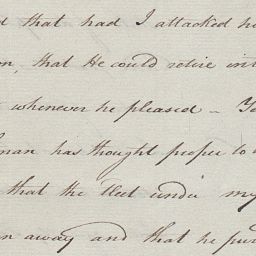 that had I attacked
that He could retire in
whenever he pleased –
man has thought proper to
that the fleet under my
away and that he pur